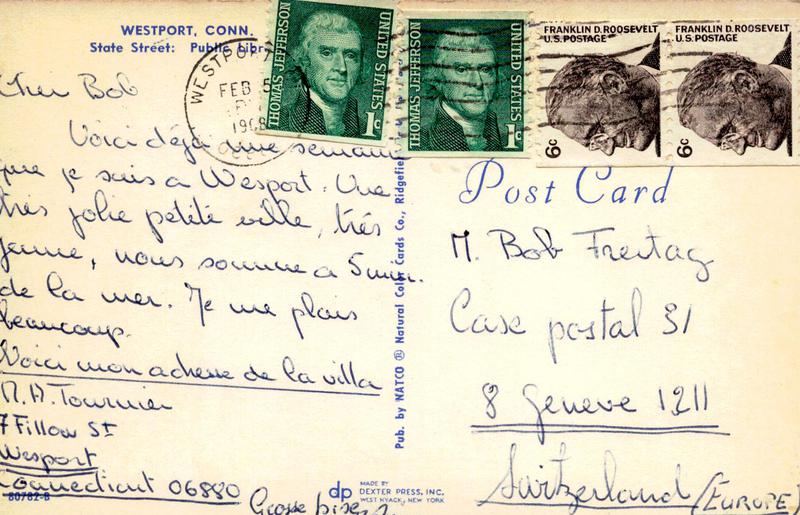 WESTPORT, CONN.
State Street: Public Libr
WESTPORT
FEB
1968
CONN
THOMAS JEFFERSON
UNITED STATES
1c
THOMAS JEFFERSON
UNITED STATES
1c
FRANKLIN D. ROOSEVELT
U.S. POSTAGE
6c
FRANKLIN D. ROOSEVELT
U.S. POSTAGE
6c
Cher Bob
Voici déjà une semaine
que je suis a Wesport. Une
très jolie petite ville, très
jeune, nous somme a 5 min.
de la mer. Je me plais
beaucoup.
Voici mon adresse de la villa
M. A. Tournier
7 Fillow St
Wesport
Connecticut 06880
Grosse bises
80782-B
Pub. by NATCO ® Natural Color Cards Co., Ridgefiel
dp
MADE BY
DEXTER PRESS, INC.
WEST NYACK, NEW YORK
Post Card
M. Bob Freitag
Case postal 31
8 Geneve 1211
Switzerland (EUROPE)